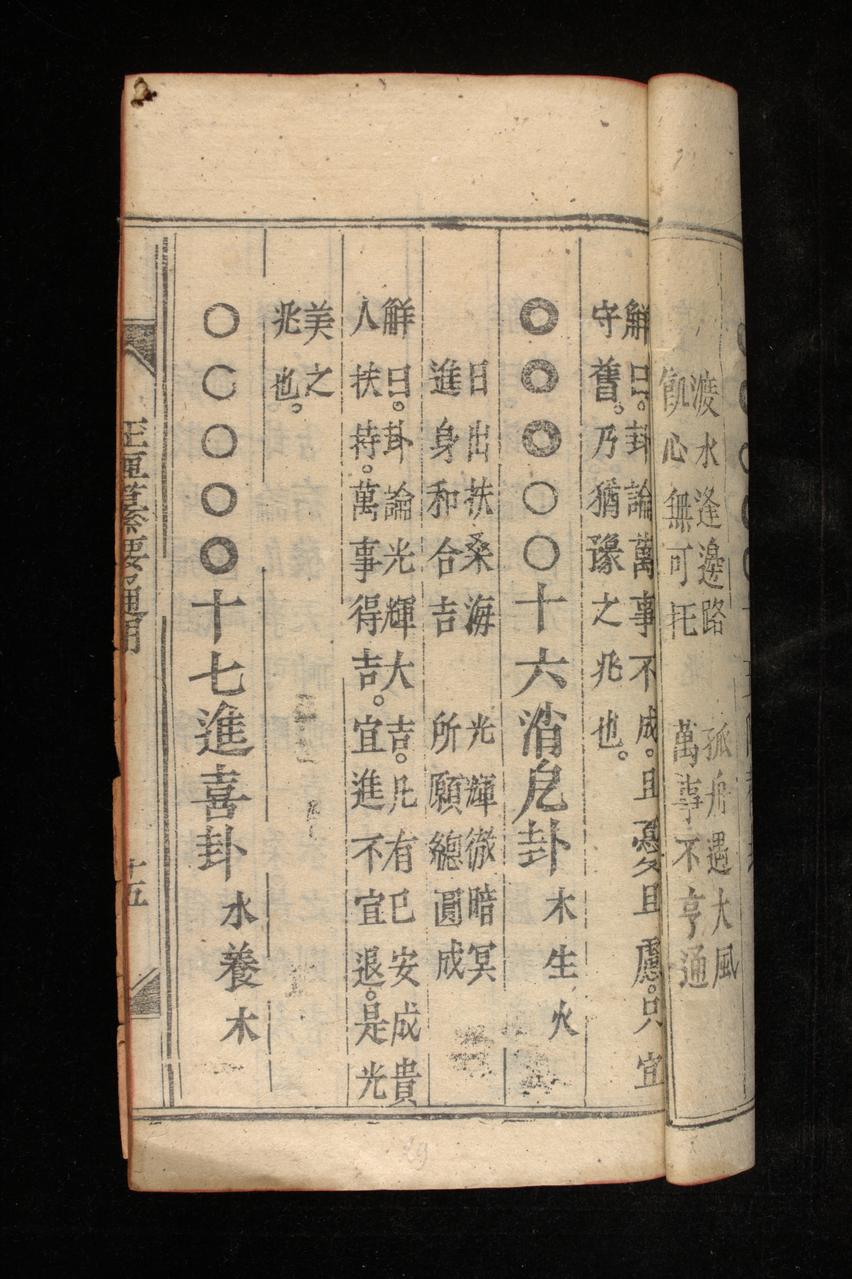 渡水逢邊路 孤舟遇大風
飢心無可托 萬事不亨通
解曰。卦論萬事不成。且憂且慮。只宜
守舊。乃猶豫之兆也。
十六消凶卦 木生火
日出扶桑海 光輝徹暗冥
進身和合吉 所願總圓成
解曰。卦論光輝大吉。凡有巳安成貴
人扶持。萬事得吉。宜進不宜退。是光
美之
兆也。
○○○○◎十七進喜卦 水養木
十五